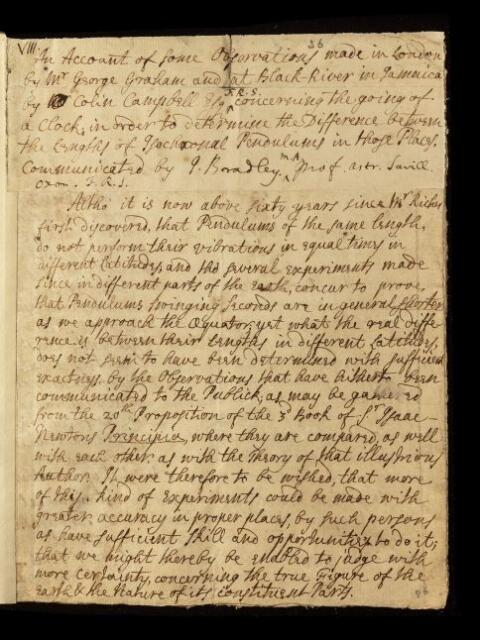 VIII.
36
An Account of some Observations made in London
by Mr George Graham and at Black-River in Jamaica
F.R.S.
by Colin Campbell Esq concerning the going of
a Clock, in order to determine the Difference between
the Lengths of Isochronal Pendulums in those Places.
Communicated by J. Bradley, M.A. Prof. astr. Savill.
Oxon. F.R.S.
Altho' it is now above sixty years since Mr Richer
first discovered, that Pendulums of the same length,
do not perform their vibrations in equal times in
different Latitudes, and tho' several experiments made
since in different parts of the earth, concur to prove,
that Pendulums swinging seconds are in general shorter
as we approach the Æquator, yet what the real diffe-
rence is between their Lengths in different Latitudes,
does not seem to have been determined with sufficient
exactness, by the Observations that have hitherto been
communicated to the Publick; as may be gathered
from the 20th Proposition of the 3d Book of Sr Isaac
Newtons Principia, where they are compared, as well
with each other, as with the Theory of that illustrious
Author. It were therefore to be wished, that more
of this kind of Experiments could be made with
greater accuracy in proper places, by such persons
as have sufficient skill and opportunities to do it;
that we might thereby be enabled to judge with
more certainty, concerning the true Figure of the
Earth & the Nature of its constituent Parts.